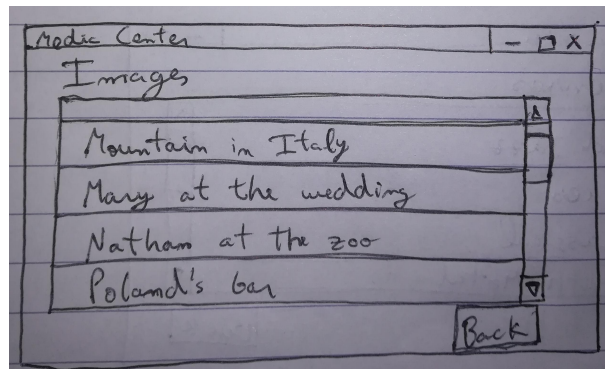 Media Center
Images
Mountain in Italy
Mary at the wedding
Nathan at the zoo
Poland's bar
Back